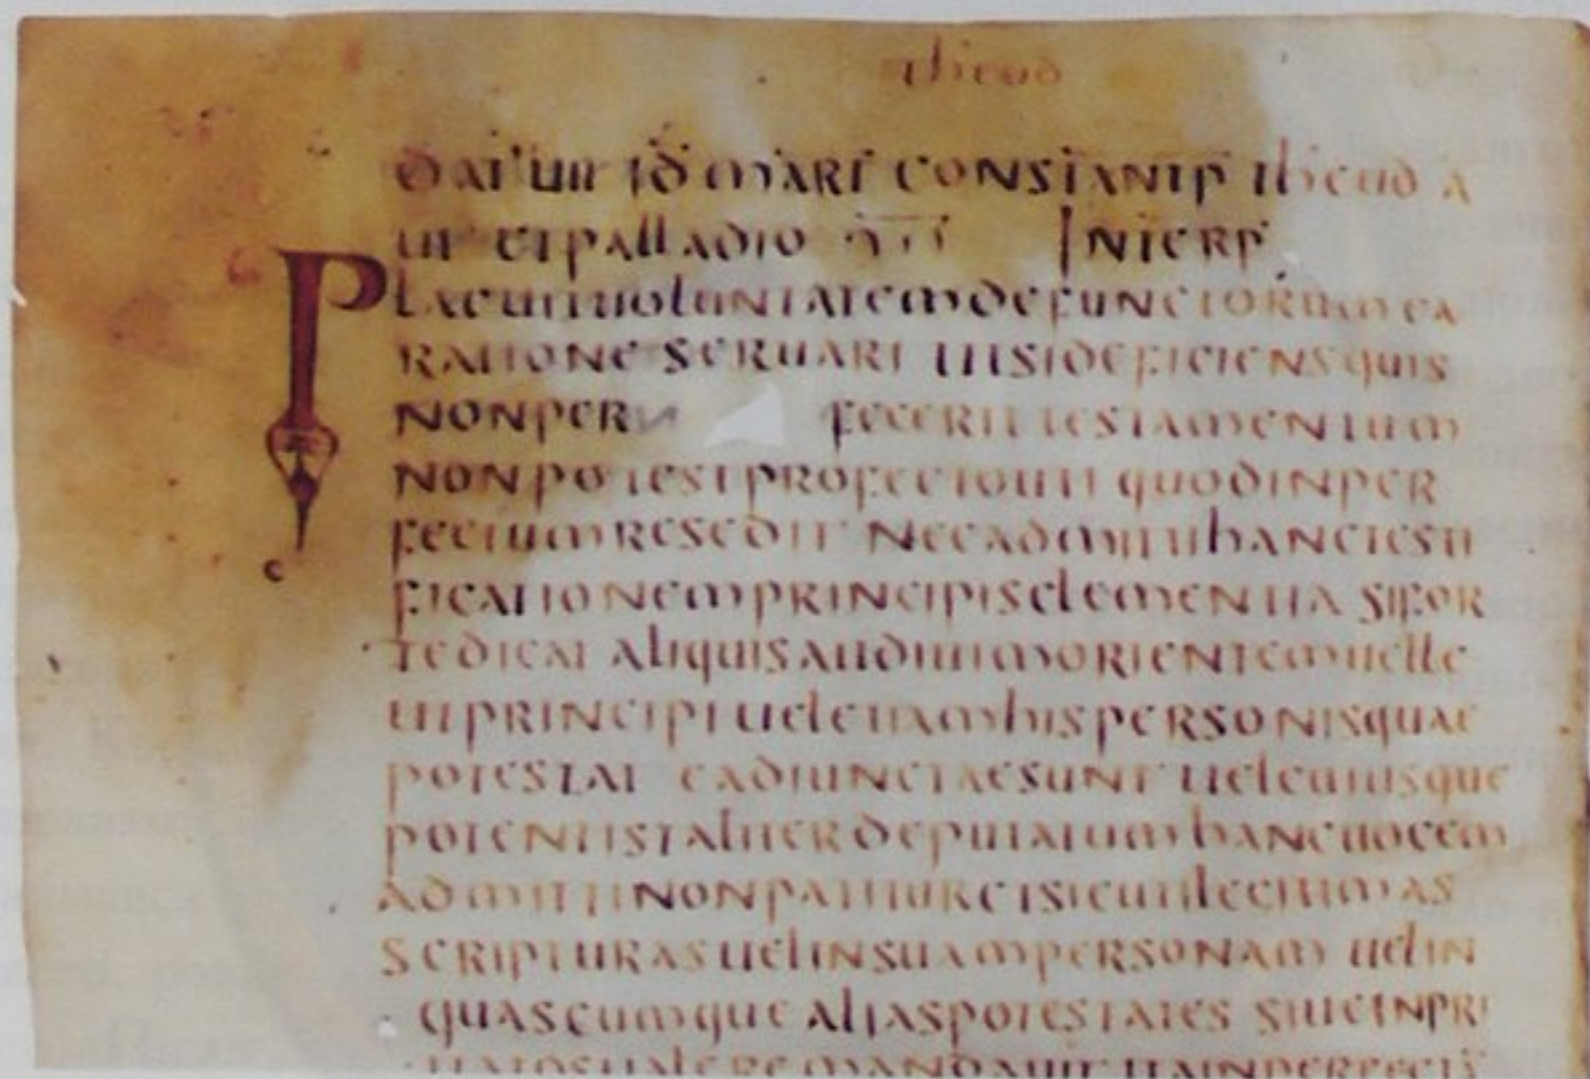 theod
dat uiii id mart constantp theod a
uii et palladio conss Interp
Placuit uoluntatem defunctorum ea
ratione seruari ut si deficiens quis
non per fecerit testamentum
non potest profecto uti quod inper
fectum resedit nec admittit hanc testi
ficationem principis clementia si for
te dicat aliquis audiui morientem uelle
ut principi uel etiam his personis quae
potestat e adiunctae sunt uel cuiusque
potentis taliter deputatum hanc uocem
admitti non patitur et sicut legitimas
scripturas uel in suam personam uel in
quascumque alias potestates siue in pri
uatos ualere mandauit ita inperfect